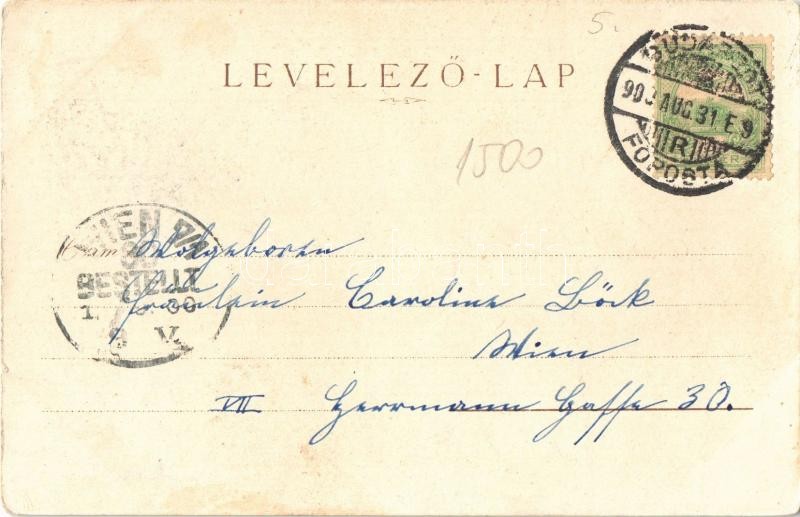 5.
LEVELEZŐ-LAP
BUDAPEST
903 AUG. 31 E 9
R
FŐPOSTA
1500
WIEN
BESTELLT
V.
Wolgeboren
Fräulein Caroline Böck
Wien
VII Herrmann Gasse 30.